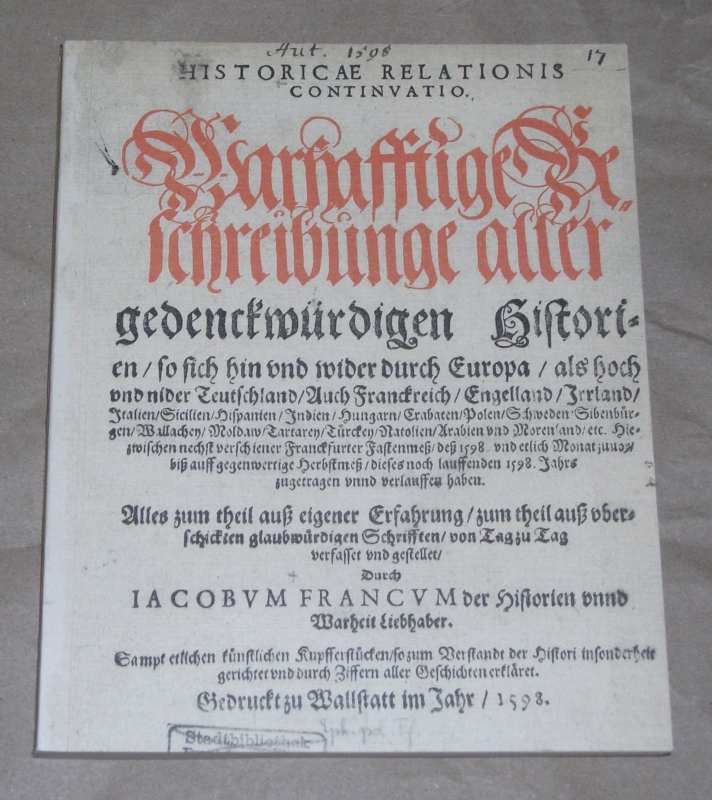 Aut. 1598
17
HISTORICAE RELATIONIS
CONTINVATIO.
Warhafftige Be⸗
schreibunge aller
gedenckwürdigen Histori⸗
en / so sich hin vnd wider durch Europa / als hoch
vnd nider Teutschland/Auch Franckreich/Engelland/Irrland/
Italien/Sicilien/Hispanien/Indien/Hungarn/Crabaten/Polen/Schweden Sibenbür⸗
gen/Wallachey/Moldaw/Tartarey/Türckey/Natolien/Arabien vnd Morenland/etc. Hie⸗
zwischen nechst verschiener Franckfurter Fastenmeß/deß 1598. vnd etlich Monat zuuor/
biß auff gegenwertige Herbstmeß/dieses noch lauffenden 1598. Jahrs
zugetragen vnnd verlauffen haben.
Alles zum theil auß eigener Erfahrung/zum theil auß vber⸗
schickten glaubwürdigen Schrifften/von Tag zu Tag
verfasset vnd gestellet/
Durch
IACOBVM FRANCVM der Historien vnnd
Warheit Liebhaber.
Sampt etlichen künstlichen Kupfferstücken/so zum Verstandt der Histori insonderheit
gerichtet vnd durch Ziffern aller Geschichten erkläret.
Gedruckt zu Wallstatt im Jahr / 1598.
Stadtbibliothek